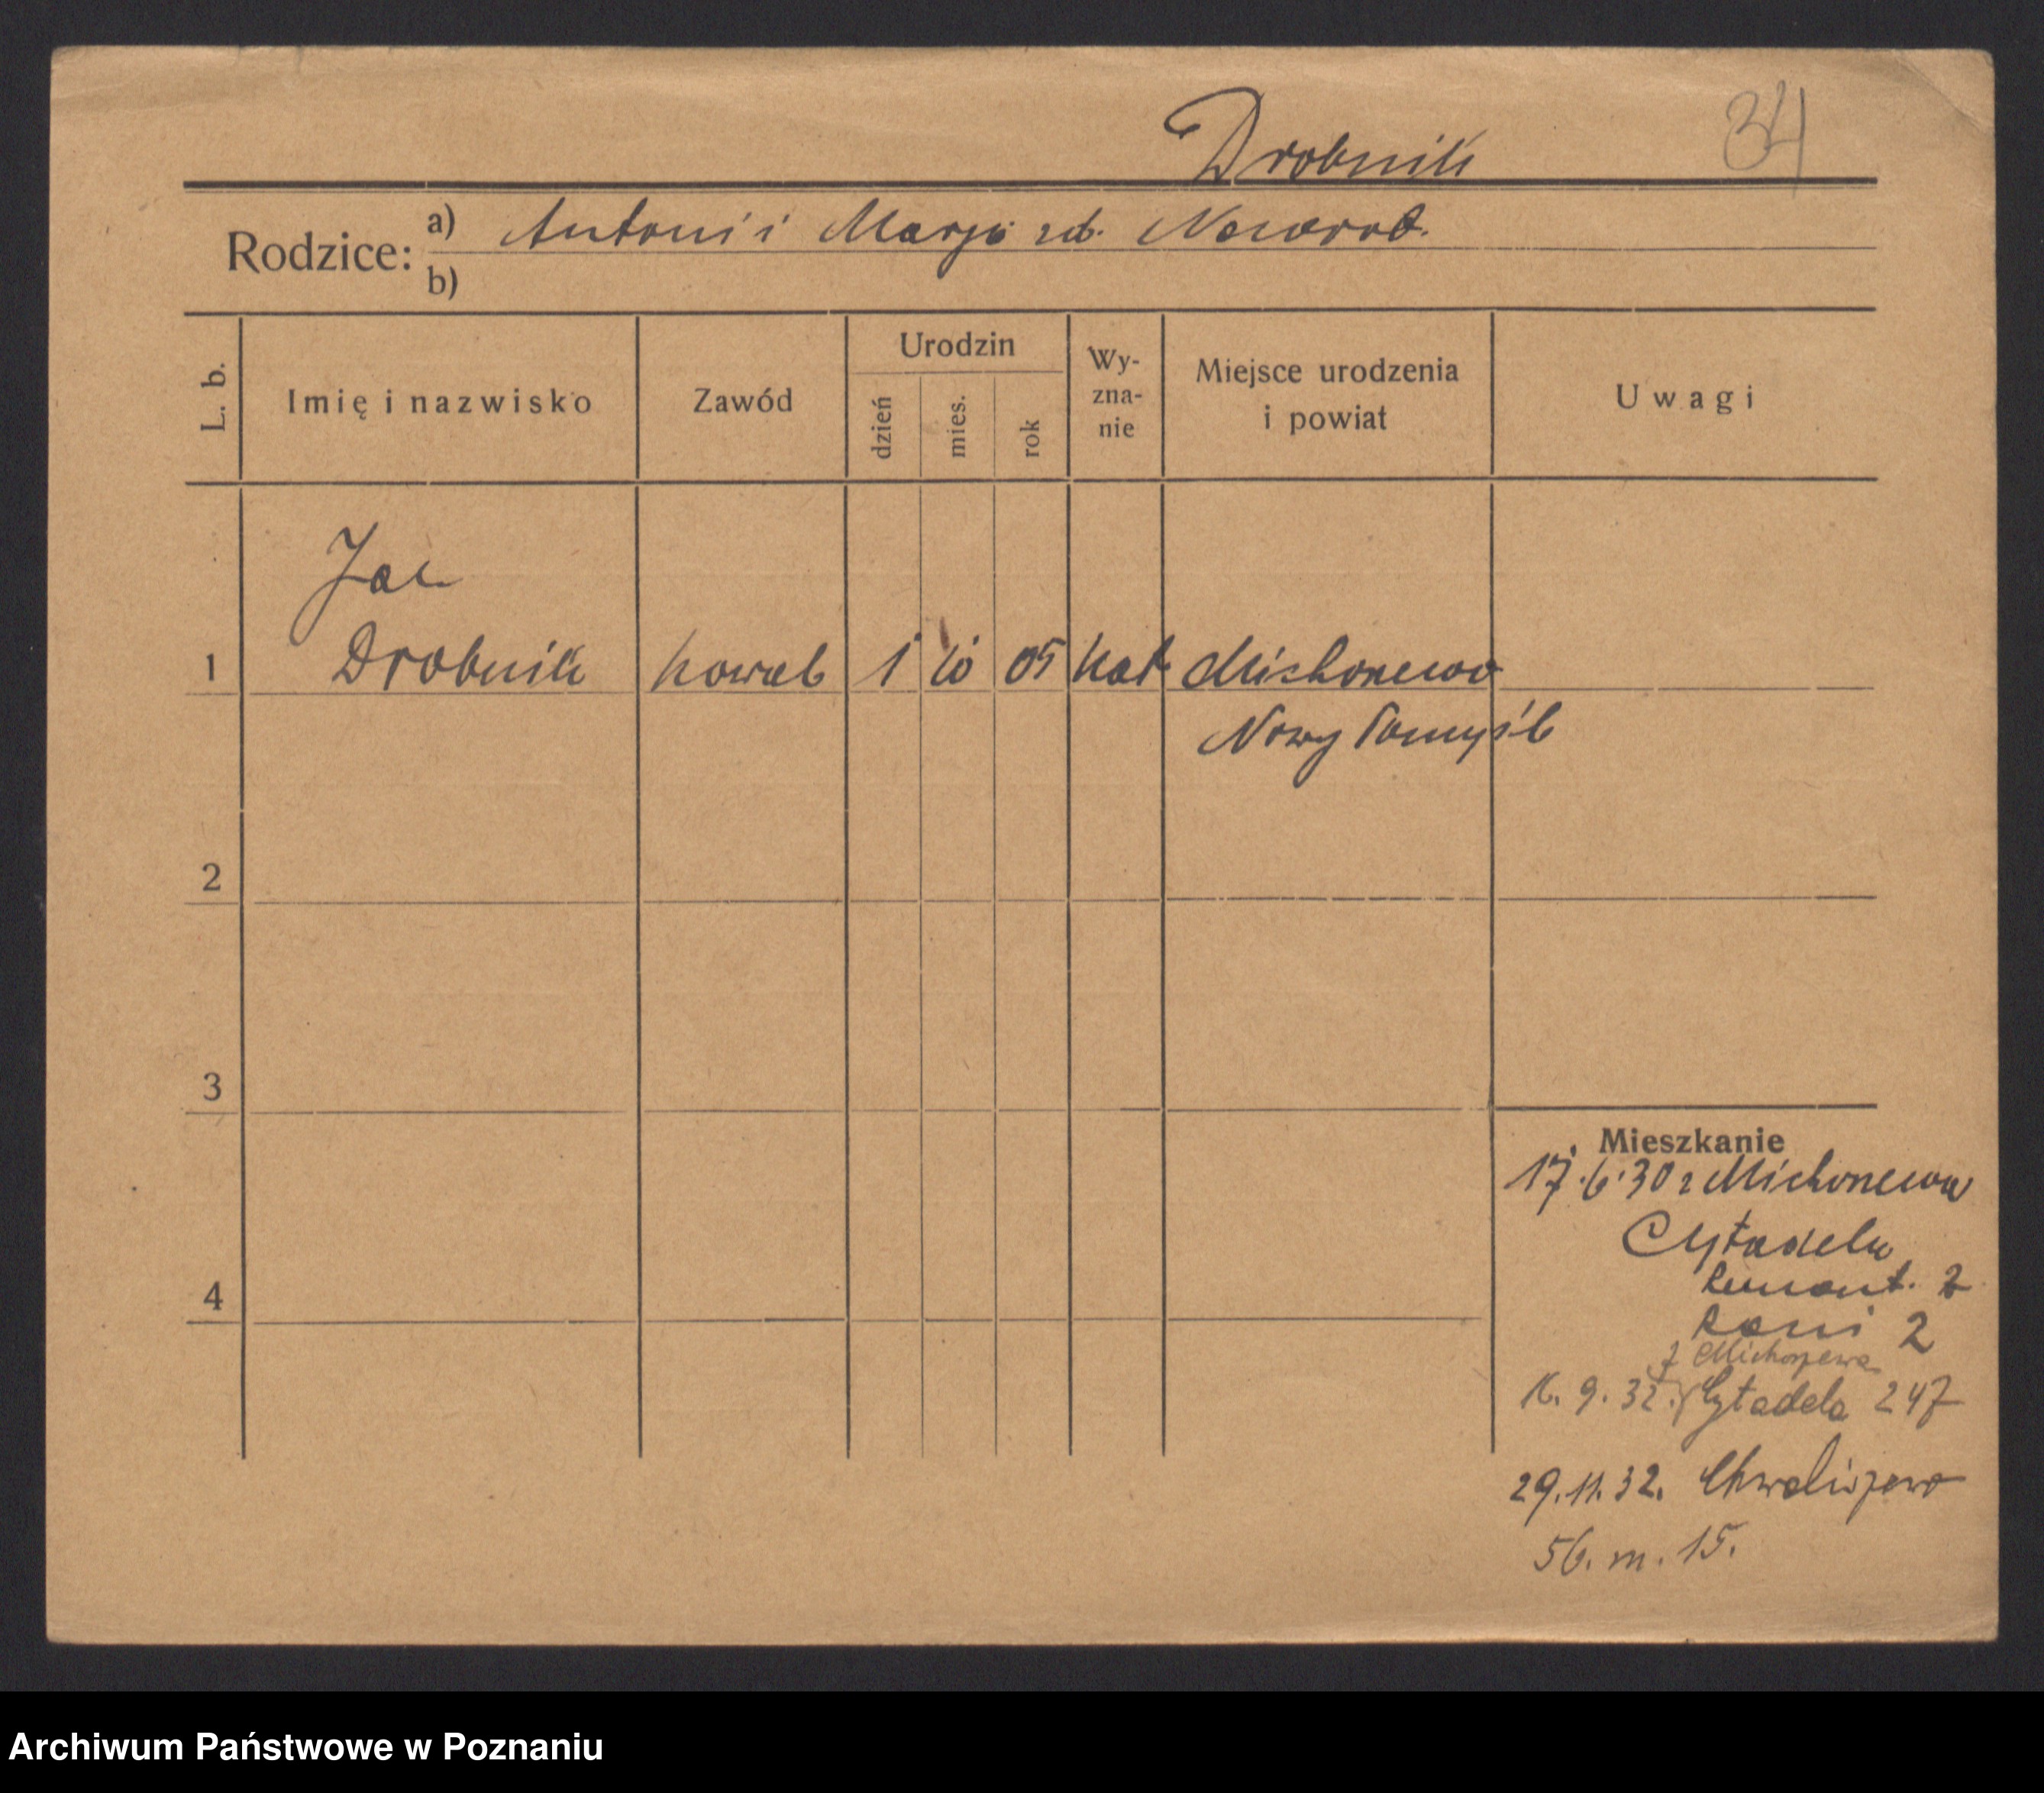 Drobnik 34
Rodzice: a) Antoni i Marja zd. Nawrot.
b)
L. b. Imię i nazwisko Zawód Urodzin dzień mies. rok Wy-zna-nie Miejsce urodzenia i powiat Uwagi
Jan
1 Drobnik kowal 1 10 05 kat Michorzewo
Nowy Tomyśl
2
3
Mieszkanie
17.6.30 z Michorzewa
Cytadela
4
Remont. 2
Koni 2
z Michorzewa
16. 9. 32. Cytadela 247
29.11.32. Chwaliszewo
56. m. 15.
Archiwum Państwowe w Poznaniu